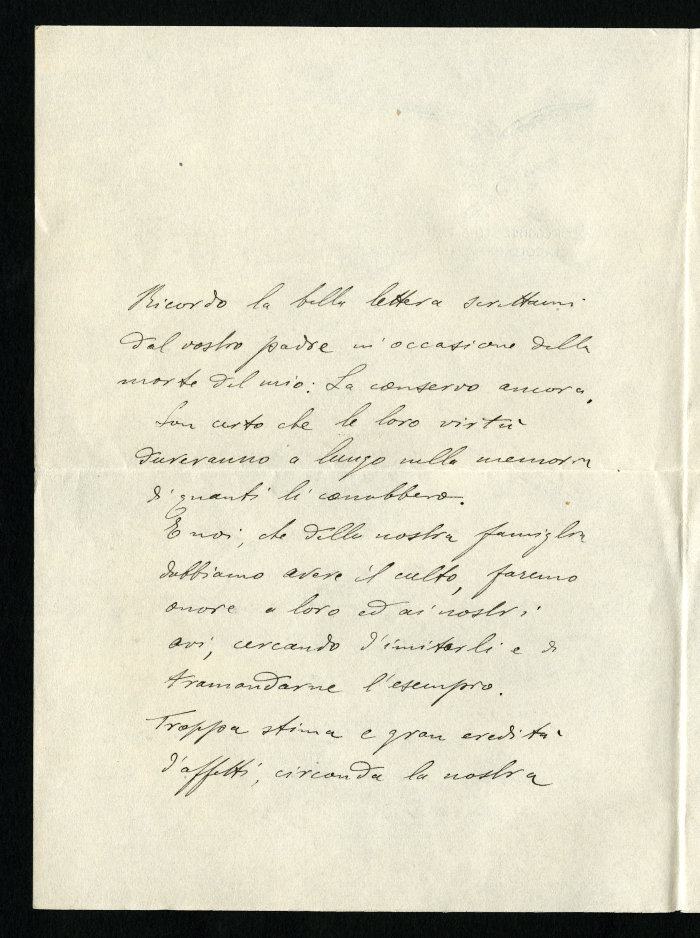 Ricordo la bella lettera scrittami
dal vostro padre in occasione della
morte del mio: La conservo ancora.
Son certo che le loro virtù
dureranno a lungo nella memoria
di quanti li conobbero.
E noi, che della nostra famiglia
dobbiamo avere il culto, faremo
onore a loro ed ai nostri
avi, cercando d'imitarli e di
tramandarne l'esempio.
Troppa stima e gran eredità
d'affetti, circonda la nostra